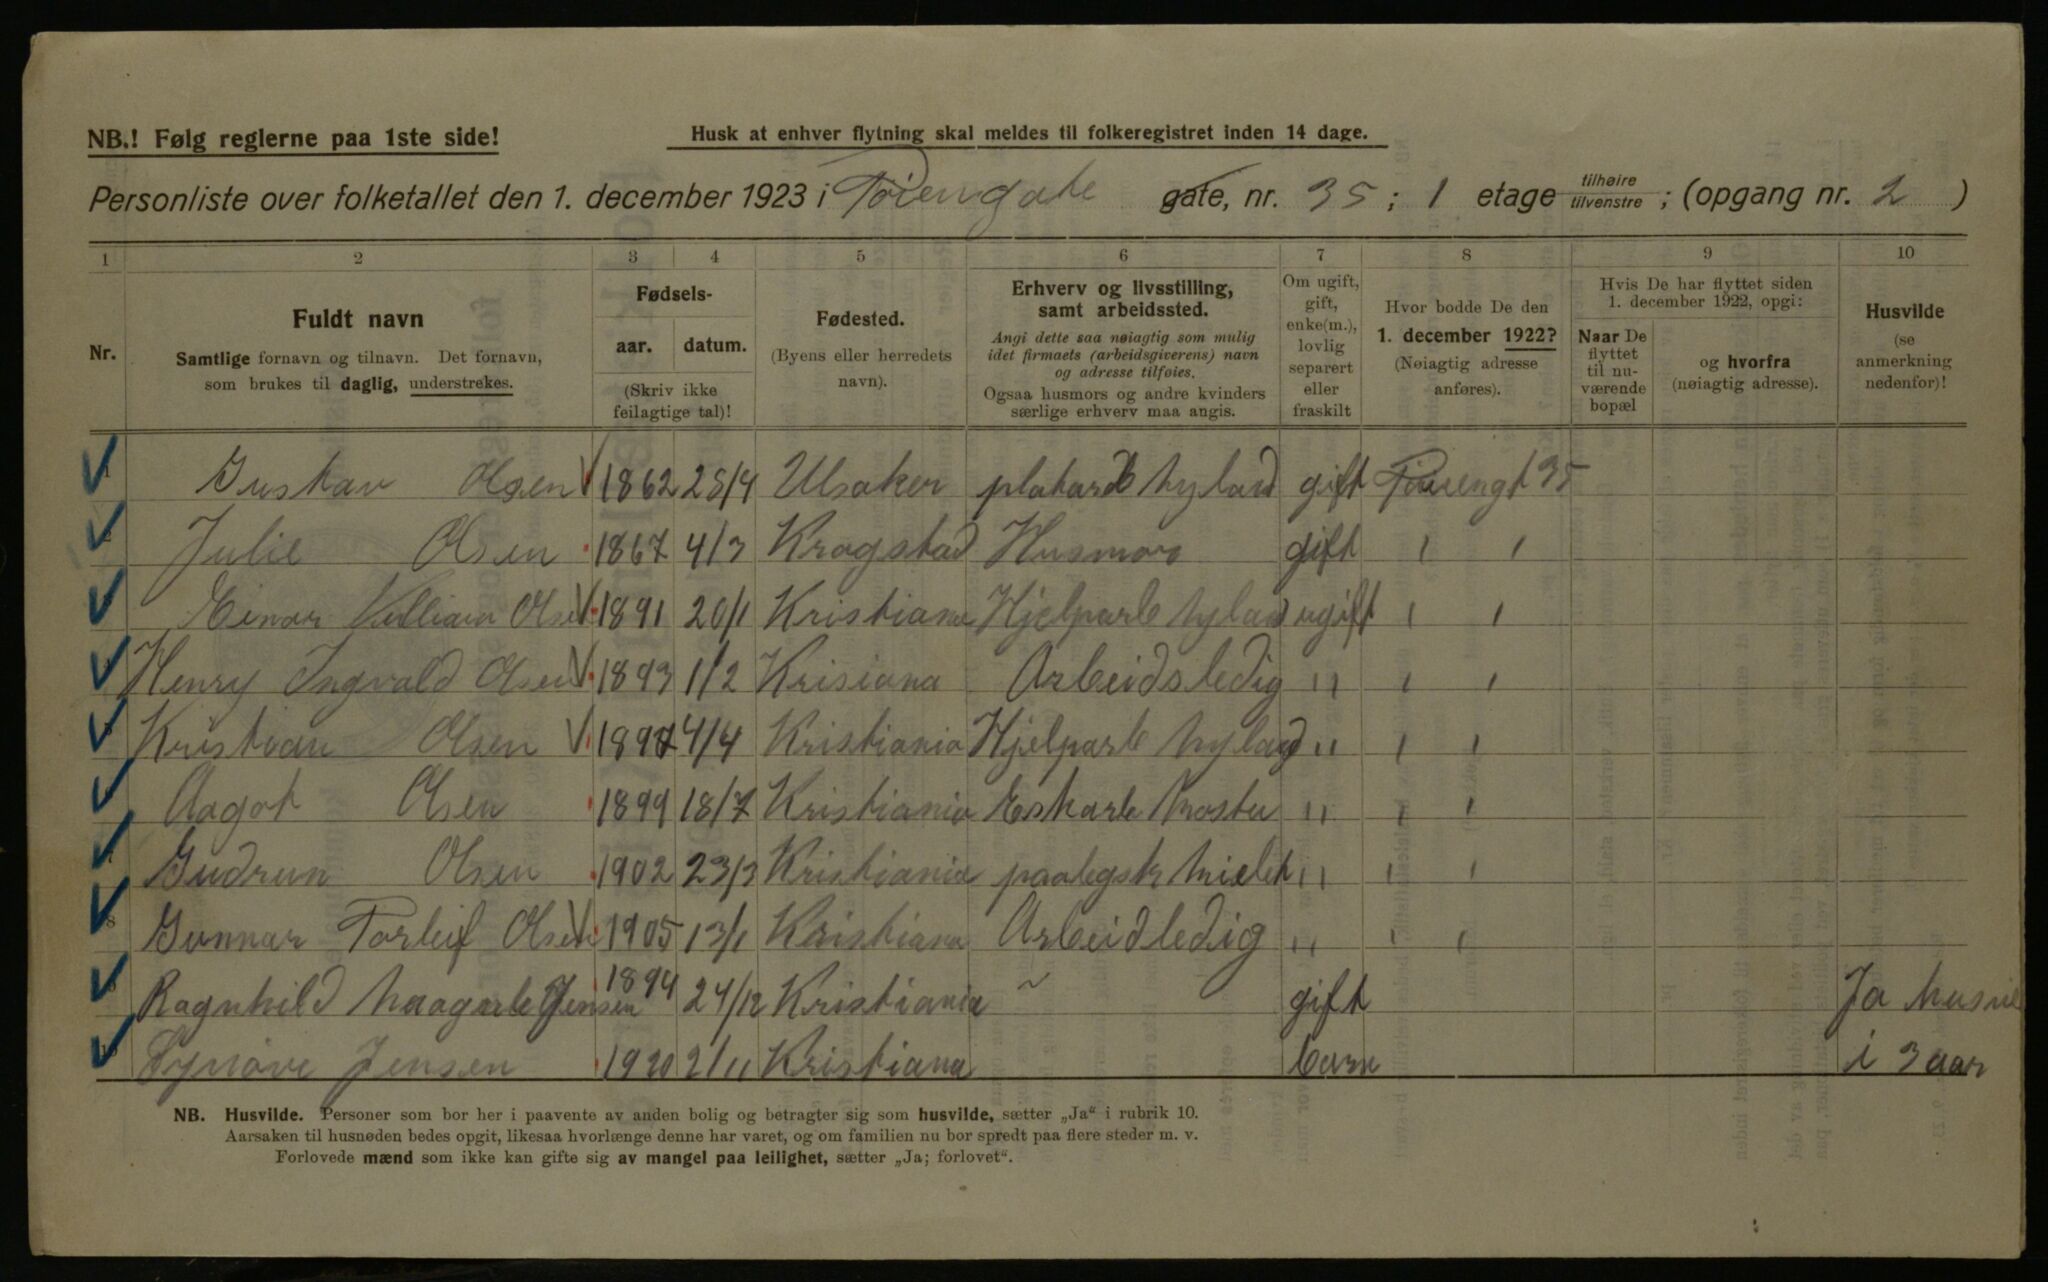 NB.! Følg reglerne paa 1ste side!
Husk at enhver flytning skal meldes til folkeregistret inden 14 dage.
Personliste over folketallet den 1. december 1923 i Tøiengate gate, nr. 35 ; 1 etage tilhøire tilvenstre ; (opgang nr. 2 )
1 2 3 4 5 6 7 8 9 10
Nr.
Fuldt navn
Samtlige fornavn og tilnavn. Det fornavn,
som brukes til daglig, understrekes.
Fødsels-
aar. datum.
(Skriv ikke
feilagtige tal)!
Fødested.
(Byens eller herredets
navn).
Erhverv og livsstilling,
samt arbeidssted.
Angi dette saa nøiagtig som mulig
idet firmaets (arbeidsgiverens) navn
og adresse tilføies.
Ogsaa husmors og andre kvinders
særlige erhverv maa angis.
Om ugift,
gift,
enke(m.),
lovlig
separert
eller
fraskilt
Hvor bodde De den
1. december 1922?
(Nøiagtig adresse
anføres).
Hvis De har flyttet siden
1. december 1922, opgi:
Naar De
flyttet
til nu-
værende
bopæl
og hvorfra
(nøiagtig adresse).
Husvilde
(se
anmerkning
nedenfor)!
1 Gustav Olsen 1862 28/4 Ulsaker gift 35
2 Julie Olsen 1867 4/3 Kragstad Husmor gift " "
Einar Villiam Olsen 1891 20/1 Kristiana Hjelparb Nyland ugift " "
Henry Ingvald Olsen 1893 1/2 Krisiana Arbeidsledig " " "
Kristian Olsen 1897 4/4 Kristiania Hjelparb Nyland " " "
Aagot Olsen 1899 18/7 Kristiania " " "
Gudrun Olsen 1902 23/3 Kristiania " " "
8 Gunnar Torleif Olsen 1905 13/1 Kristiana Arbeidledig " " "
Ragnhild Jensen 1894 24/12 Kristiania ~ gift Ja husvil
10 Synøve Jensen 1920 2/11 Kristiana barn i 3 aar
NB. Husvilde. Personer som bor her i paavente av anden bolig og betragter sig som husvilde, sætter „Ja“ i rubrik 10.
Aarsaken til husnøden bedes opgit, likesaa hvorlænge denne har varet, og om familien nu bor spredt paa flere steder m. v.
Forlovede mænd som ikke kan gifte sig av mangel paa leilighet, sætter „Ja; forlovet“.